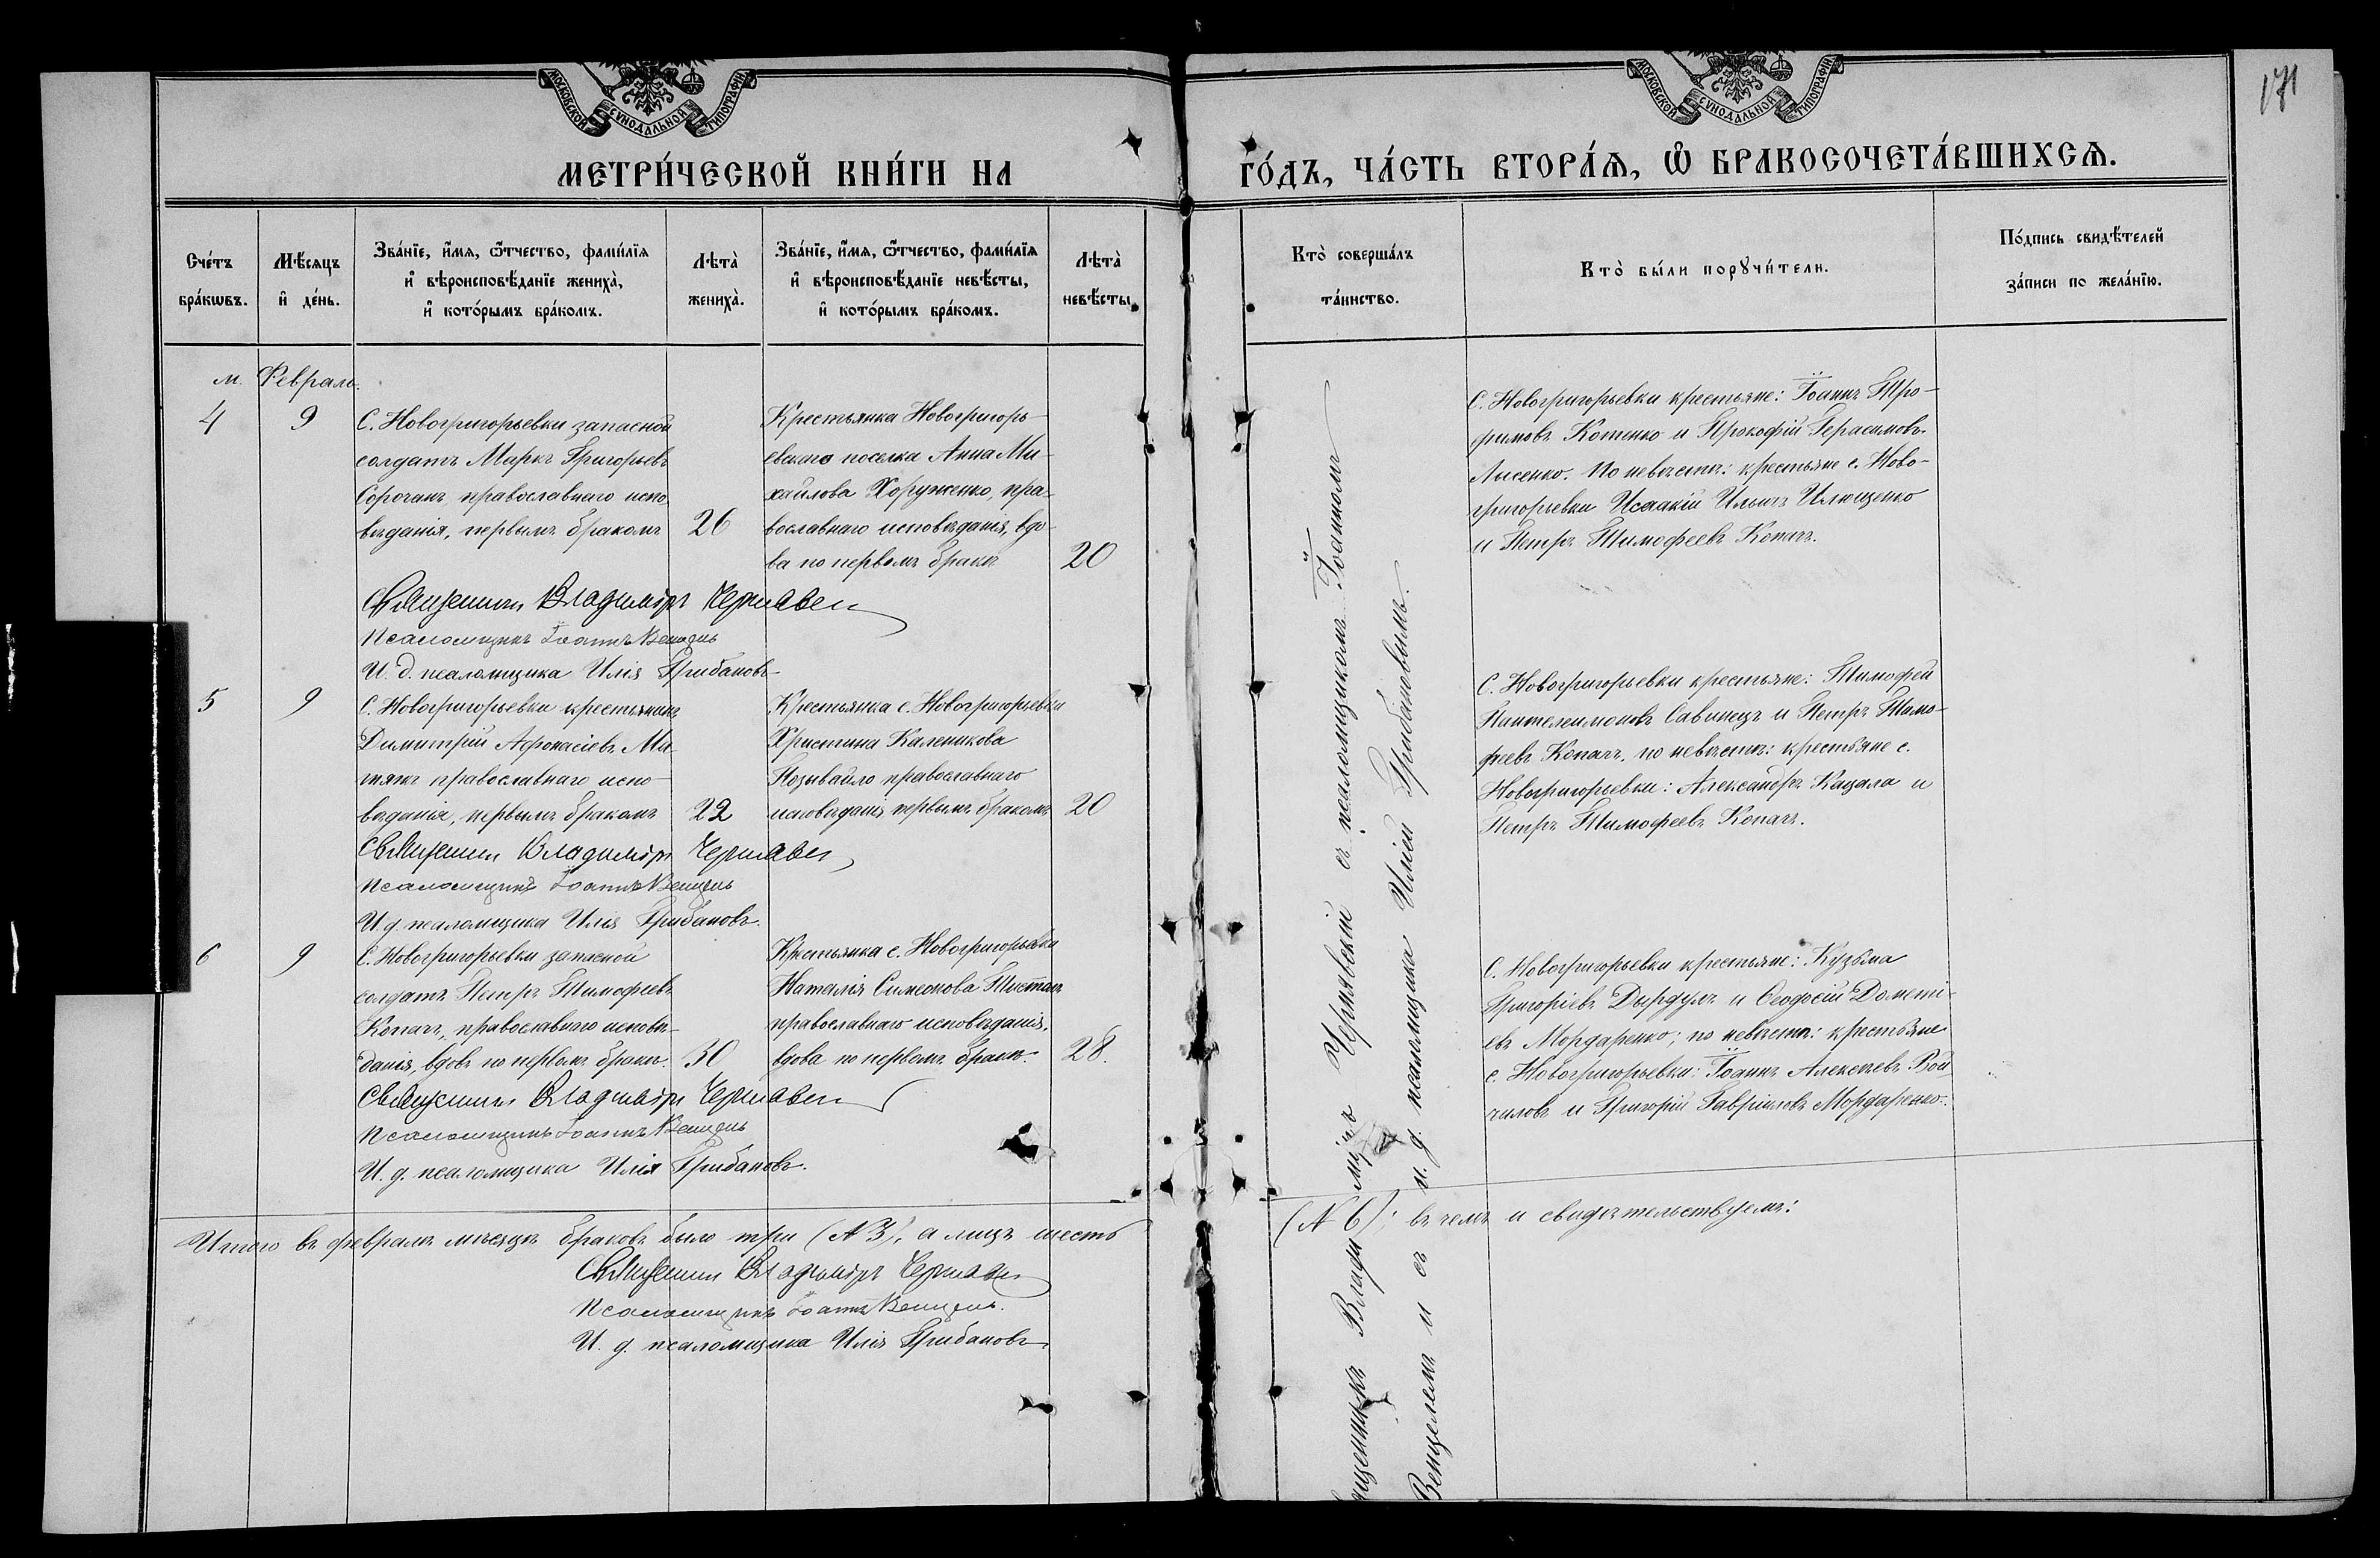 МОСКОВСКОЙ СУНОДАЛЬНОЙ ТИПОГРАФІИ
МОСКОВСКОЙ СУНОДАЛЬНОЙ ТИПОГРАФІИ
171
МЕТРИ́ЧЕСКОЙ КНИ́ГИ НА
ГО́ДЪ, ЧА́СТЬ ВТОРА́Ѧ, Ѽ БРАКОСОЧЕТА́ВШИХСѦ.
Сче́тъ
бра́кѡвъ.
Мѣ́сѧцъ
и҆ де́нь.
Зва́нїе, и҆́мѧ, ѻ҆́тчество, фами́лїѧ
и҆ вѣроисповѣ́данїе жениха̀,
и҆ кото́рымъ бра́комъ.
Лѣта̀
жениха̀.
Зва́нїе, и҆́мѧ, ѻ҆́тчество, фами́лїѧ
и҆ вѣроисповѣ́данїе невѣ́сты,
и҆ кото́рымъ бра́комъ.
Лѣта̀
невѣ́сты.
Кто̀ соверша́лъ
та́инство.
Кто̀ бы́ли порꙋчи́тели.
По́дпись свидѣ́телей
за́писи по жела́нїю.
м. Февраль.
4
9
С. Новогригорьевки запасной
солдатъ Маркъ Григорьевъ
Сорочанъ православнаго испо
вѣданія, первымъ бракомъ
26
Крестьянка Новогригорь-
евскаго поселка Анна Ми-
хайлова Хоруженко, пра-
вославнаго исповѣданія, вдо-
ва по первомъ бракѣ
20
С. Новогригорьевки крестьяне: Іоаннъ Тро-
фимовъ Котенко и Прокофій Герасимовъ
Лисенко. По невѣстѣ: крестьяне с. Ново-
григорьевки Исаакій Ильичъ Илющенко
и Петръ Тимофеевъ Копачъ.
Священникъ Владиміръ Чернявскій
Псаломщикъ Іоаннъ Венцель
И. д. псаломщика Илія Грибановъ
5
9
С. Новогригорьевки крестьянинъ
Димитрій Афонасіевъ Ма-
тякъ православнаго испо-
вѣданія, первымъ бракомъ
22
Крестьянка с. Новогригорьевки
Христина Каленикова
Позывайло православнаго
исповѣданія первымъ бракомъ
20
С. Новогригорьевки крестьяне: Тимофей
Пантелеимоновъ Савинецъ и Петръ Тимо-
феевъ Копачъ, по невѣстѣ: крестьяне с.
Новогригорьевки: Александръ Кацала и
Петръ Тимофеевъ Копачъ.
Священникъ Владиміръ Чернявскій
Псаломщикъ Іоаннъ Венцель
И. д. псаломщика Илія Грибановъ.
6
9
С. Новогригорьевки запасной
солдатъ Петръ Тимофеевъ
Копачъ, православнаго исповѣ-
данія, вдовъ по первомъ бракѣ.
30
Крестьянка с. Новогригорьевки
Наталія Симеонова
православнаго исповѣданія,
вдова по первомъ бракѣ.
28.
С. Новогригорьевки крестьяне: Кузьма
Григоріевъ Дырдулъ и Феодосій Домети-
евъ Мордаренко; по невѣстѣ: крестьяне
с. Новогригорьевки: Іоаннъ Алексѣевъ Вой
чиловъ и Григорій Гавріиловъ Мордаренко.
Священникъ Владиміръ Чернявскій
Псаломщикъ Іоаннъ Венцель
И. д. псаломщика Илія Грибановъ.
Священникъ Владиміръ Чернявскій съ псаломщикомъ Іоанномъ
Венцелемъ и съ и. д. псаломщика Иліей Грибановымъ.
Итого въ февралѣ мѣсяцѣ браковъ было три (№ 3), а лицъ шесть
(№ 6); въ чемъ и свидѣтельствуемъ:
Священникъ Владиміръ Чернявскій
Псаломщикъ Іоаннъ Венцель.
И. д. псаломщика Илія Грибановъ.